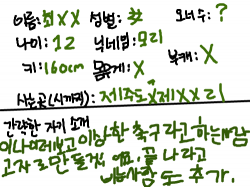 이름: 최XX 성별: 女 오너수: ?
나이: 12 닉네임: 모리
키: 160cm 몸무게: X 부캐: X
사는곳(시까지): 제주도X제XX리
간략한 자기 소개
이나여러보고 이상한 축구라고 하는 사람
고자로 만들겠 꼴 나라고
하는사람도 추가.